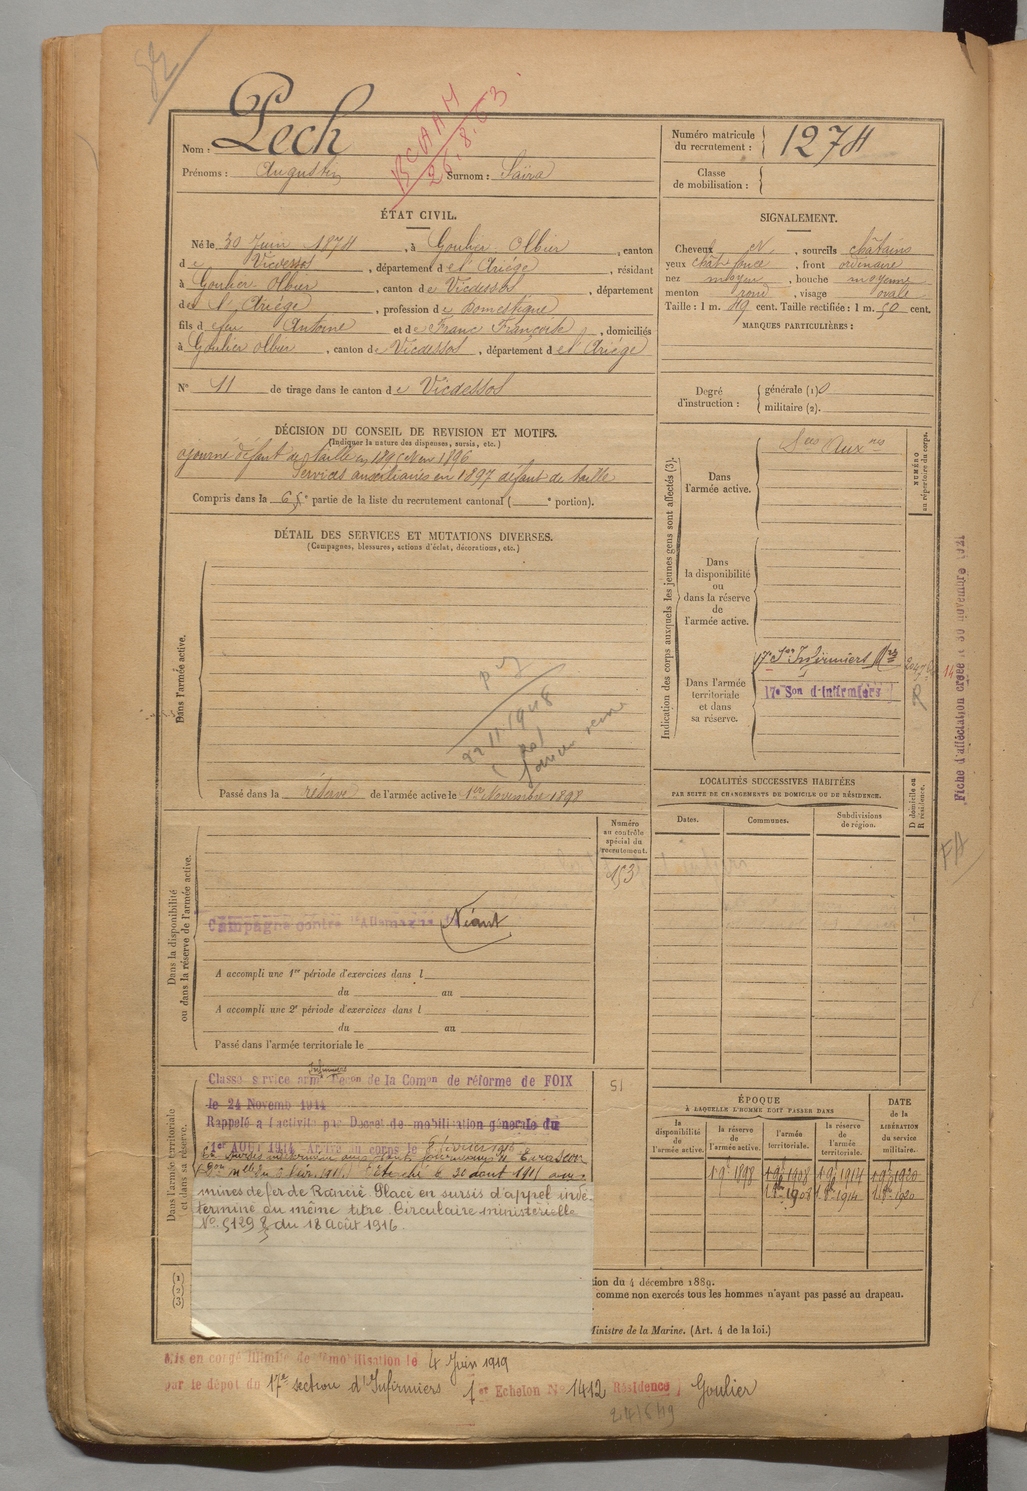 Nom : Pech
Prénoms : Augustin Surnom : Saïra
BCAAM
26.8.63
Numéro matricule du recrutement : 1274
Classe de mobilisation :
ÉTAT CIVIL.
Né le 30 Juin 1874, à Goulier Olbier, canton
de Vicdessos, département de l'Ariége, résidant
à Goulier Olbier, canton de Vicdessos, département
de l'Ariége, profession de Domestique
fils de feu Antoine et de Franc Françoise, domiciliés
à Goulier olbier, canton de Vicdessos, département de l'Ariége
N° 11 de tirage dans le canton de Vicdessos
SIGNALEMENT.
Cheveux N, sourcils châtains
yeux chât foncé, front ordinaire
nez moyen, bouche moyenne
menton rond, visage ovale
Taille : 1 m. 49 cent. Taille rectifiée : 1 m. 50 cent.
MARQUES PARTICULIÈRES :
Degré d'instruction : générale (1) 0
militaire (2).
DÉCISION DU CONSEIL DE REVISION ET MOTIFS.
(Indiquer la nature des dispenses, sursis, etc.)
ajourné défaut de taille en 1895 et en 1896
Services auxiliaires en 1897 défaut de taille
Compris dans la 6e partie de la liste du recrutement cantonal ( e portion).
DÉTAIL DES SERVICES ET MUTATIONS DIVERSES.
(Campagnes, blessures, actions d'éclat, décorations, etc.)
Dans l'armée active.
Passé dans la réserve de l'armée active le 1er Novembre 1898
Indication des corps auxquels les jeunes gens sont affectés (3).
NUMÉRO au répertoire du corps.
Dans l'armée active.
Sces Auxres
Dans la disponibilité ou dans la réserve de l'armée active.
Dans l'armée territoriale et dans sa réserve.
17e Son Infirmiers
17e Son d'Infirmiers
R
Fiche d'affectation créée le 30 novembre 1921
LOCALITÉS SUCCESSIVES HABITÉES
PAR SUITE DE CHANGEMENTS DE DOMICILE OU DE RÉSIDENCE.
Dates. Communes. Subdivisions de région. D domicile ou R résidence.
FA
Dans la disponibilité ou dans la réserve de l'armée active.
Numéro au contrôle spécial du recrutement.
153
Campagne contre l'Allemagne Néant
A accompli une 1re période d'exercices dans l
du au
A accompli une 2e période d'exercices dans l
du au
Passé dans l'armée territoriale le
Dans l'armée territoriale et dans sa réserve.
Infirmiers
Classé service armé Décon de la Comon de réforme de FOIX
51
le 24 Novemb 1914
Rappelé à l'activité par Décret de mobilisation générale du
1er AOUT 1914 Arrivé au corps le
mines de fer de Rancié Placé en sursis d'appel indé-
terminé au même titre. Circulaire ministérielle
N° 5129 du 18 Août 1916.
ÉPOQUE À LAQUELLE L'HOMME DOIT PASSER DANS
la disponibilité de l'armée active. la réserve de l'armée active. l'armée territoriale. la réserve de l'armée territoriale.
DATE de la LIBÉRATION du service militaire.
1 9e 1898 1 9e 1908 1 9e 1914 1 9e 1920
1er 8e 1908 1er 8e 1914 1er 8e 1920
(1)
(2)
(3)
tion du 4 décembre 1889.
comme non exercés tous les hommes n'ayant pas passé au drapeau.
Ministre de la Marine. (Art. 4 de la loi.)
Mis en congé illimité de démobilisation le 4 Juin 1919
par le dépôt du 17e section d'Infirmiers 1er Echelon N° 1412 Résidence Goulier
24/6/19